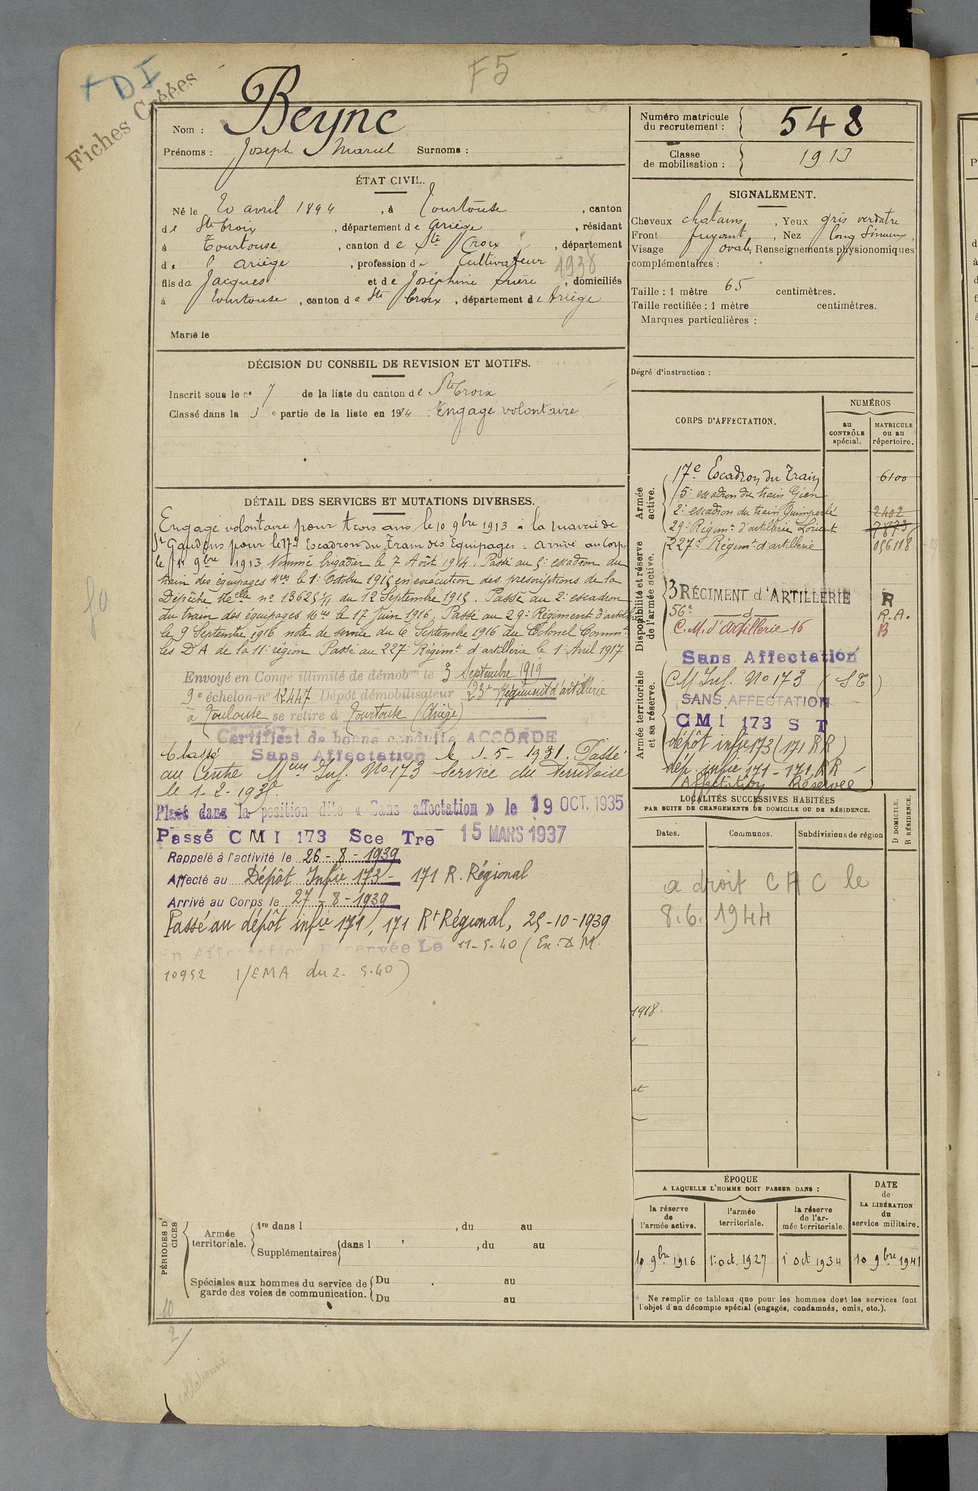 + DI
F5
Fiches Créées
Nom : Beyne
Prénoms : Joseph Marcel Surnoms :
Numéro matricule du recrutement : 548
Classe de mobilisation : 1913
ÉTAT CIVIL.
Né le 20 avril 1894, à Tourtouse, canton
de Ste Croix, département de Ariège, résidant
à Tourtouse, canton de Ste Croix, département
de l'Ariège, profession de Cultivateur
1938
fils de Jacques et de Joséphine, domiciliés
à Tourtouse, canton de Ste Croix, département de Ariège
Marié le
SIGNALEMENT.
Cheveux chatains, Yeux gris verdatre
Front fuyant, Nez long Sinueux
Visage oval, Renseignements physionomiques
complémentaires :
Taille : 1 mètre 65 centimètres.
Taille rectifiée : 1 mètre centimètres.
Marques particulières :
Dégré d'instruction :
DÉCISION DU CONSEIL DE REVISION ET MOTIFS.
Inscrit sous le no 7 de la liste du canton de Ste Croix
Classé dans la 3e partie de la liste en 1914 : Engagé volontaire
DÉTAIL DES SERVICES ET MUTATIONS DIVERSES.
Engagé volontaire pour trois ans le 10 9bre 1913 à la mairie de
St Gaudens pour le 17e Escadron du Train des Equipages - arrivé au Corps
le 11 9bre 1913 Nommé brigadier le 7 Août 1914. Passé au 5e escadron du
train des équipages Mres le 1er Octobre 1915 en exécution des prescriptions de la
Dépêche Melle no 13625 du 12 Septembre 1915. Passé au 2e escadron
du train des équipages Mres le 17 Juin 1916. Passé au 29e Régiment d'artillerie
le 9 Septembre 1916 note de service du 6 Septembre 1916 du Colonel Comm
les D'A de la 11e région Passé au 227e Régimt d'artillerie le 1er Avril 1917
Envoyé en Congé illimité de démobon le 3 Septembre 1919
9e échelon-no 12447 Dépôt démobilisateur 23e Régiment d'artillerie
à Toulouse se retire à Tourtouse (Ariège)
Certificat de bonne conduite ACCORDÉ
Classé Sans Affectation le 1-5-1931. Passé
au Centre Meur Inf. No 173 Service du Territoire
le 1-2-193
Placé dans la position dite « Sans affectation » le 19 OCT. 1935
Passé CMI 173 Sce Tre 15 MARS 1937
Rappelé à l'activité le 26-8-1939
Affecté au Dépôt Infie 173 - 171 R. Régional
Arrivé au Corps le 27-8-1939
Passé au dépôt infie 171, 171 Rt Régional, 25-10-1939
En Affectation Réservée Le 11-5-40 (Ex. D.M.
10952 1/EMA du 2-5-40)
CORPS D'AFFECTATION.
NUMÉROS
au CONTRÔLE spécial.
MATRICULE ou au répertoire.
Armée active.
17e Escadron du Train 6100
5e escadron du train Gien
2e escadron du train Quimperlé 2402
29e Régimt d'artillerie Lorient 7873
227e Régimt d'artillerie
Disponibilité et réserve de l'armée active.
3 RÉGIMENT d'ARTILLERIE R
56e d R.A.
C.M. d'Artillerie 16 B
Armée territoriale et sa réserve.
Sans Affectation
CM Inf. No 173 (ST)
SANS AFFECTATION
CMI 173 S T
dépôt infie 173 (171 RR)
dép. infie 171 - 171 RR
Affectation Réservée
LOCALITÉS SUCCESSIVES HABITÉES
PAR SUITE DE CHANGEMENTS DE DOMICILE OU DE RÉSIDENCE.
Dates. Communes. Subdivisions de région
D DOMICILE. R RÉSIDENCE.
a droit CAC le
8.6.1944
1918.
et
ÉPOQUE
A LAQUELLE L'HOMME DOIT PASSER DANS :
la réserve de l'armée active.
l'armée territoriale.
la réserve de l'armée territoriale.
DATE de LA LIBÉRATION du service militaire.
10 9bre 1916 1 oct. 1927 1 oct 1934 10 9bre 1941
Ne remplir ce tableau que pour les hommes dont les services font
l'objet d'un décompte spécial (engagés, condamnés, omis, etc.).
Armée territoriale.
1re dans l , du au
Supplémentaires dans l , du au
Spéciales aux hommes du service de garde des voies de communication.
Du au
Du au
10
2